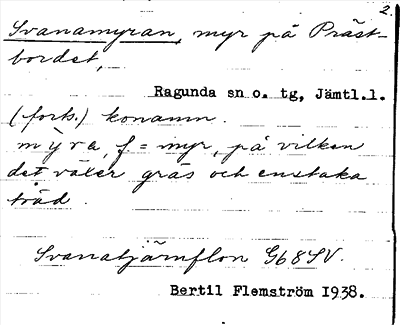 2.
Svanamyran, myr på Präst-
bordet,
Ragunda sn o. tg, Jämtl.l.
(forts.) konamn.
mỳra, f = myr, på vilken
det växer gräs och enstaka
träd.
Svanatjärnflon G68SV.
Bertil Flemström 1938.